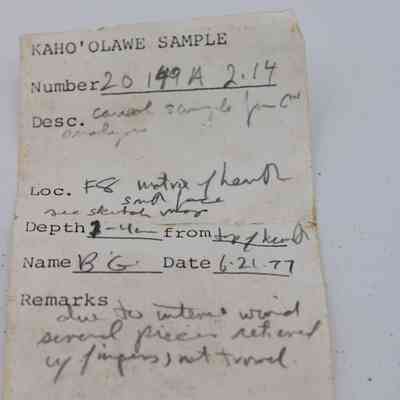 KAHO'OLAWE SAMPLE
Number 20 149A 2.14
Desc. sample for C14
analysis
Loc. F8 matrix of hearth
south face
see sketch map
Depth 2-4cm from top of hearth
Name B G. Date 6-21-77
Remarks
due to intense wind
several pieces retrieved
w/ fingers, not trowel.